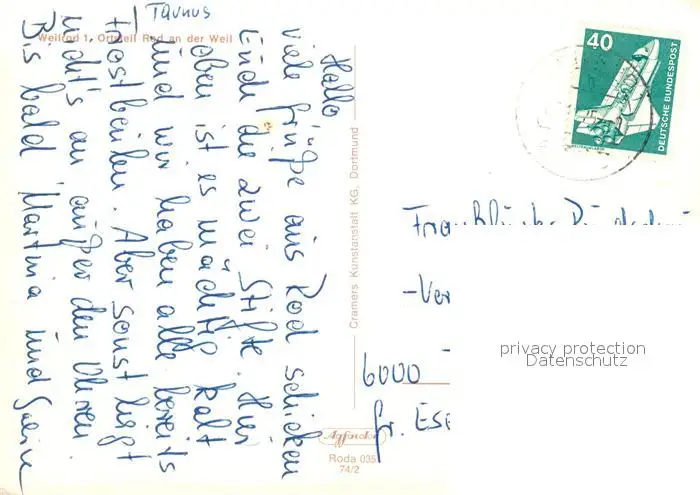 Taunus
Weilrod 1, Ortsteil Rod an der Weil
Hallo
viele Grüße aus Rod schicken
Euch die zwei Stifte. Hier
oben ist es mächtig kalt
und wir haben alle bereits
Frostbeulen. Aber sonst liegt
nicht's an außer den Ohren
Bis bald Martina und
Cramers Kunstanstalt KG, Dortmund
Roda 035
74/2
40
DEUTSCHE BUNDESPOST
-Ver
6000
Fr. Ese
privacy protection
Datenschutz